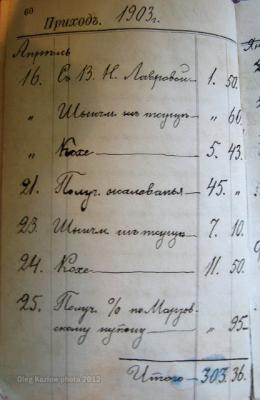 60
Приходъ. 1903 г.
Апрѣль
16. Съ В. Н. Лавровой 1. 50.
„ „ 60.
„ Кохе 5. 43.
21. Получ. жалованья 45. „
23. 7. 10.
24. Кохе 11. 50.
25. Получ. % по Марто-
вскому купону „ 95.
Итого 303. 36.
Oleg Kozlov photo 2012